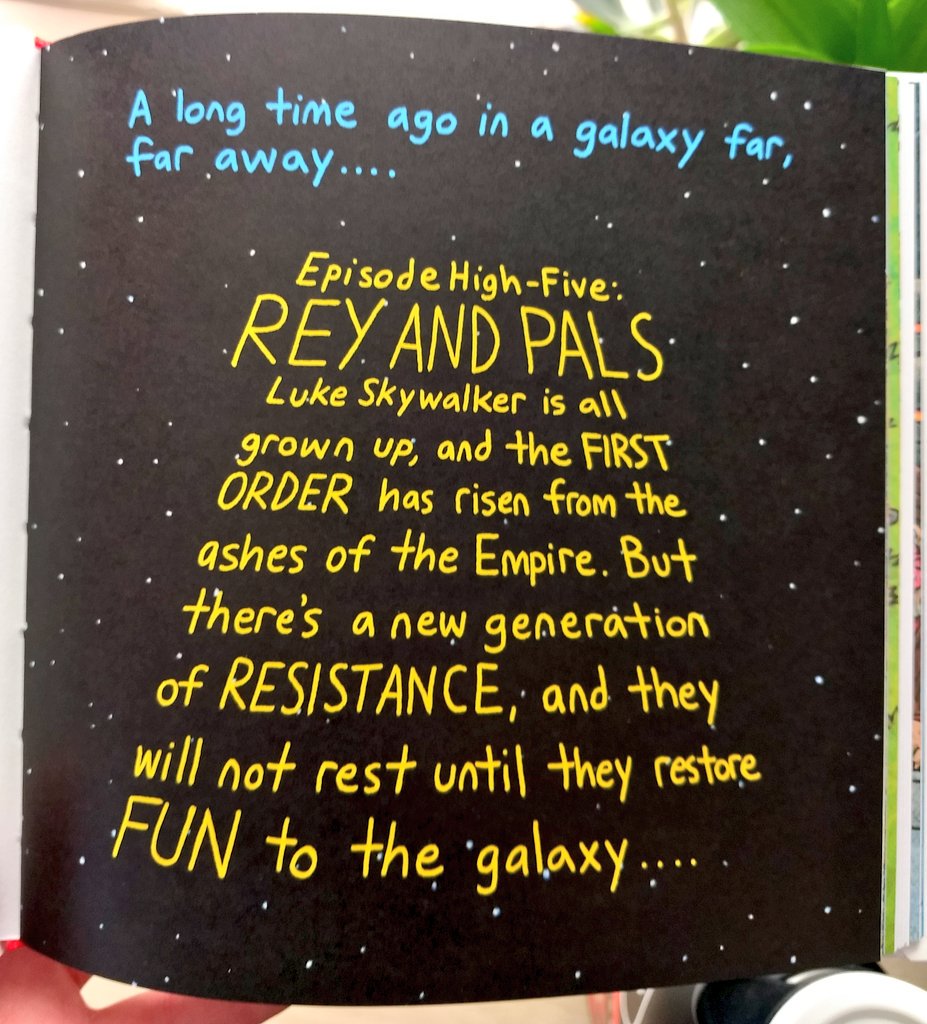 A long time ago in a galaxy far,
far away....
Episode High-Five:
REY AND PALS
Luke Skywalker is all
grown up, and the FIRST
ORDER has risen from the
ashes of the Empire. But
there's a new generation
of RESISTANCE, and they
will not rest until they restore
FUN to the galaxy....